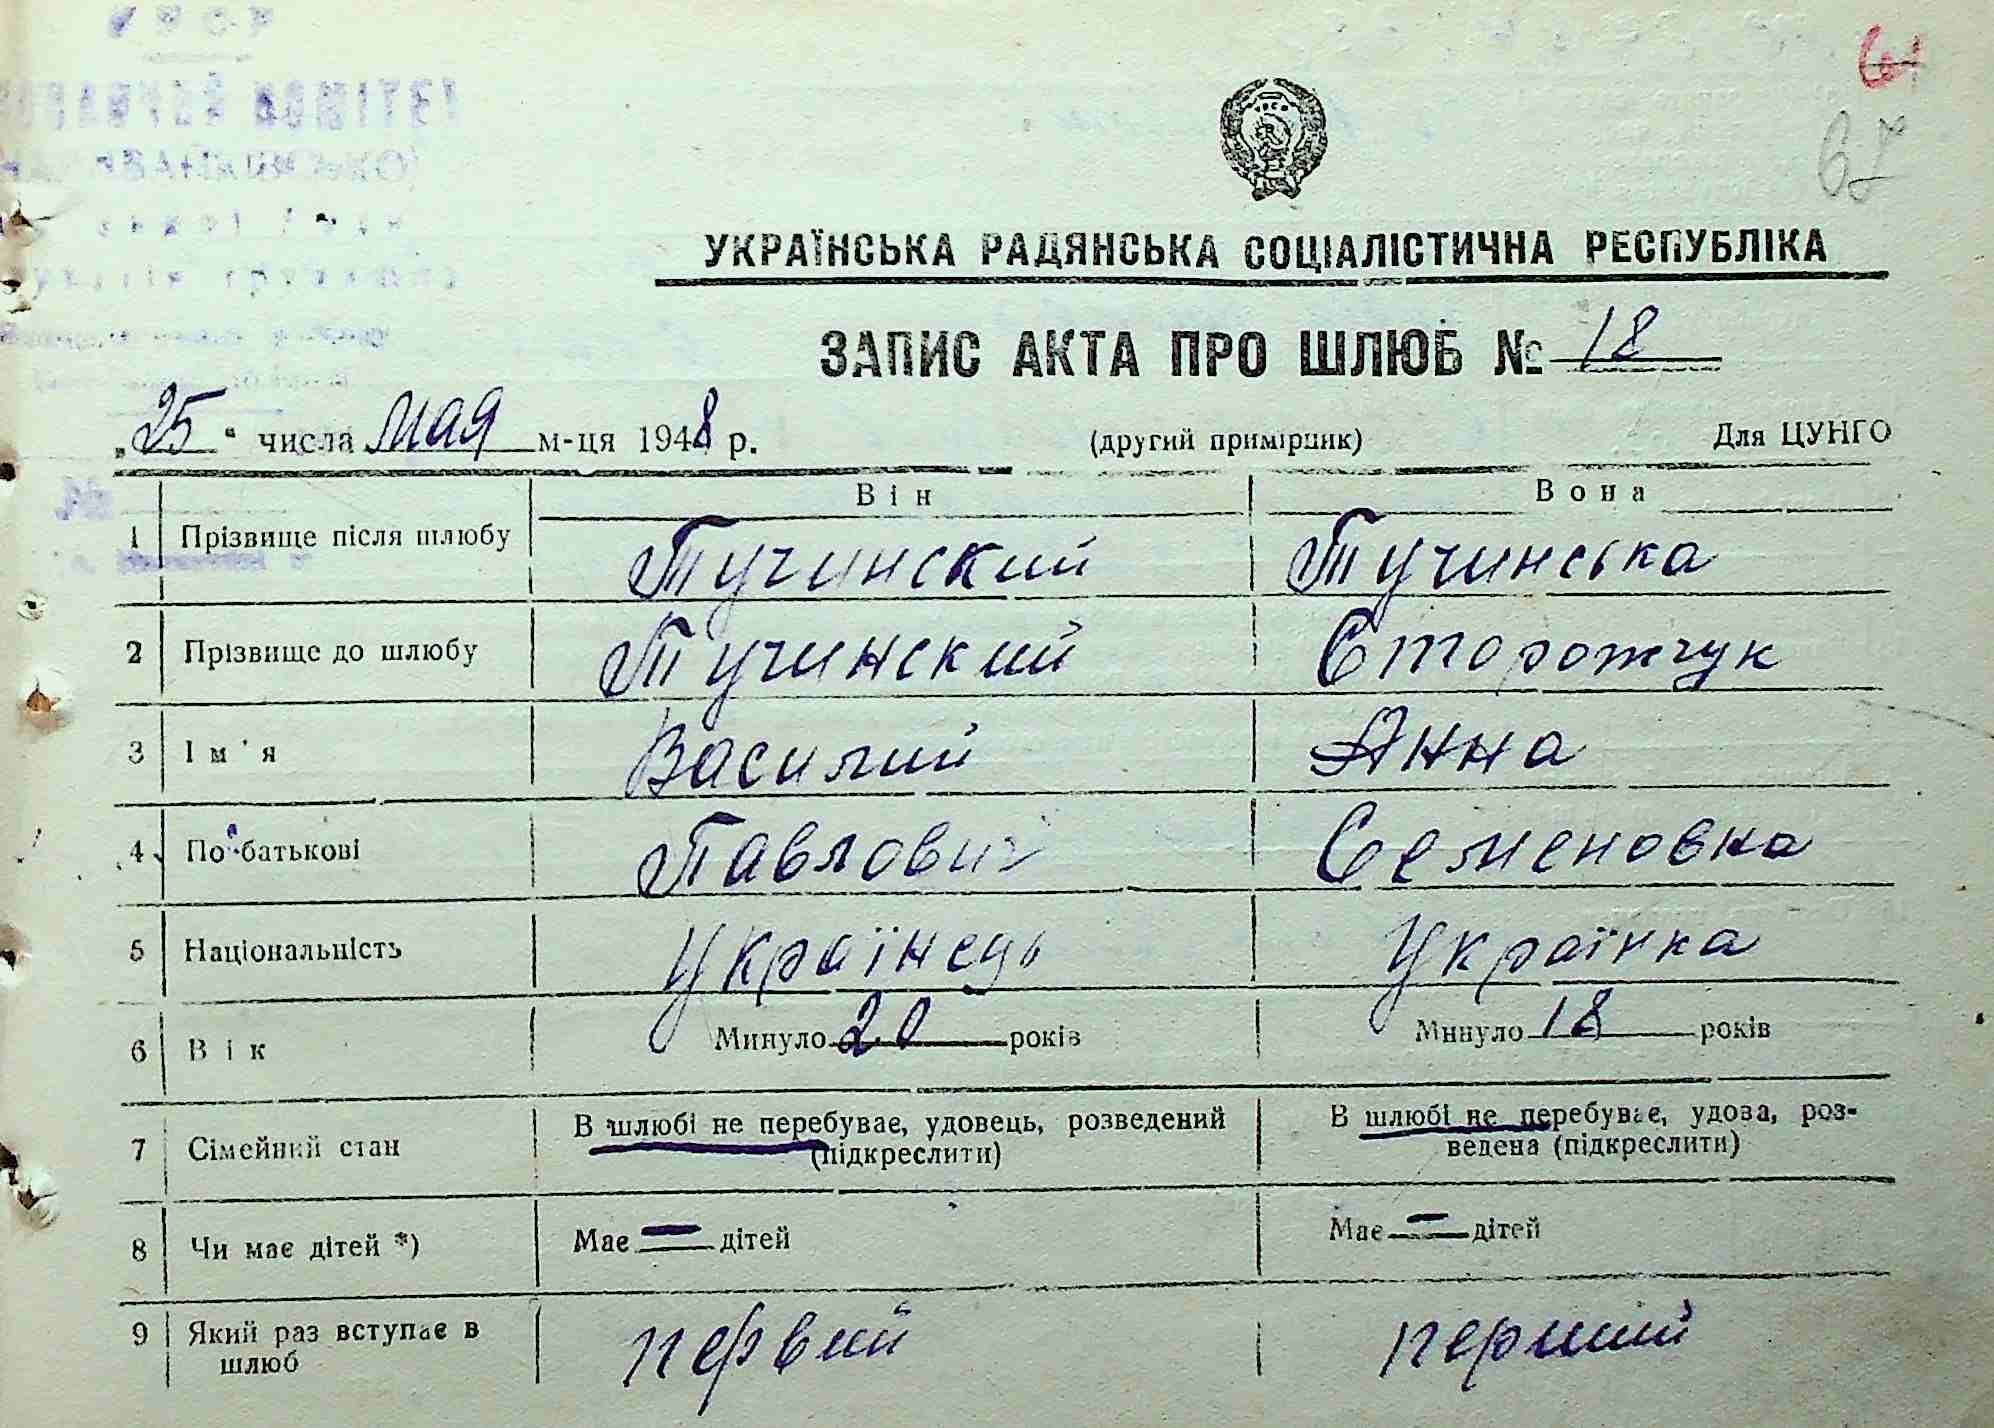 УКРАЇНСЬКА РАДЯНСЬКА СОЦІАЛІСТИЧНА РЕСПУБЛІКА
ЗАПИС АКТА ПРО ШЛЮБ № 18
„25“ числа мая м-ця 1948 р. (другий примірник) Для ЦУНГО
Він Вона
1 Прізвище після шлюбу Тучинский Тучинська
2 Прізвище до шлюбу Тучинский Сторожчук
3 Ім'я Василий Анна
4 По-батькові Павлович Семеновна
5 Національність Українець Українка
6 Вік Минуло 20 років Минуло 18 років
7 Сімейний стан В шлюбі не перебуває, удовець, розведений (підкреслити) В шлюбі не перебуває, удова, роз-
ведена (підкреслити)
8 Чи має дітей *) Має — дітей Має — дітей
9 Який раз вступає в шлюб первий перший